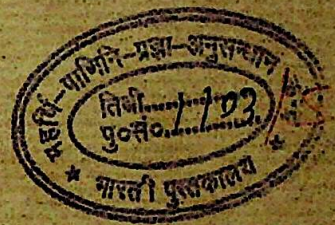 महर्षि-पाणिनि-प्रज्ञा-अनुसन्धान
तिथी..............
पु०सं०....1103....
★ भारती पुस्तकालय ★